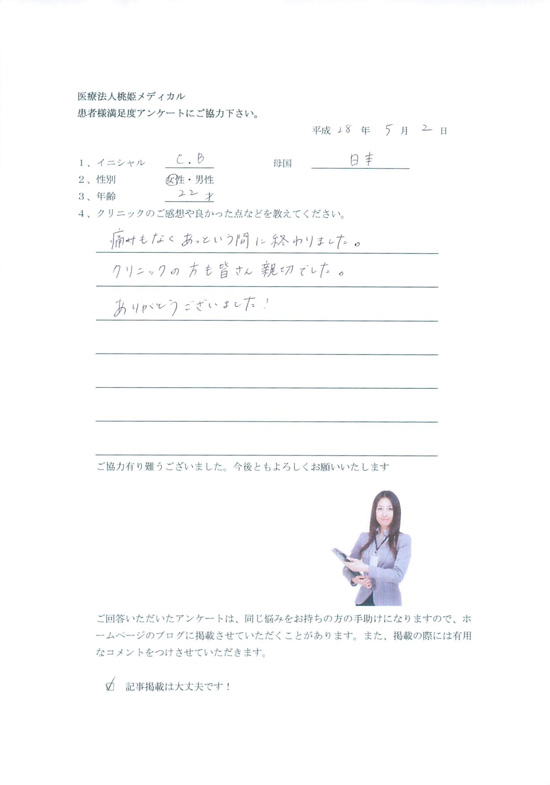 医療法人桃姫メディカル
患者様満足度アンケートにご協力下さい。
平成 28 年 5 月 2 日
1、イニシャル C.B 母国 日本
2、性別 女性・男性
3、年齢 22 才
4、クリニックのご感想や良かった点などを教えてください。
痛みもなくあっという間に終わりました。
クリニックの方も皆さん親切でした。
ありがとうございました!
ご協力有り難うございました。今後ともよろしくお願いいたします
ご回答いただいたアンケートは、同じ悩みをお持ちの方の手助けになりますので、ホ
ームページのブログに掲載させていただくことがあります。また、掲載の際には有用
なコメントをつけさせていただきます。
☑ 記事掲載は大丈夫です!